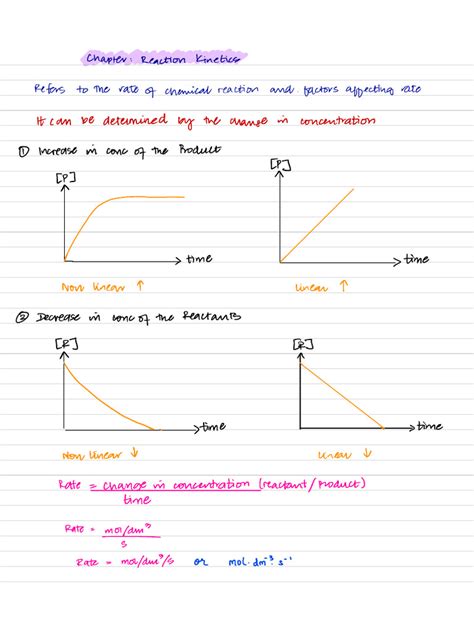 Chapter: Reaction Kinetics
Refers to the rate of chemical reaction and factors affecting rate
It can be determined by the change in concentration
① Increase in conc of the Product
[P] [P]
time time
Non linear ↑ linear ↑
② Decrease in conc of the Reactants
[R] [R]
time time
Non linear ↓ linear ↓
Rate = change in concentration (reactant/product)
time
Rate = mol/dm³
s
Rate = mol/dm³/s or mol.dm⁻³.s⁻¹